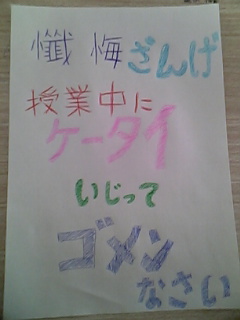 懺悔ざんげ
授業中に
ケータイ
いじって
ゴメン
なさい